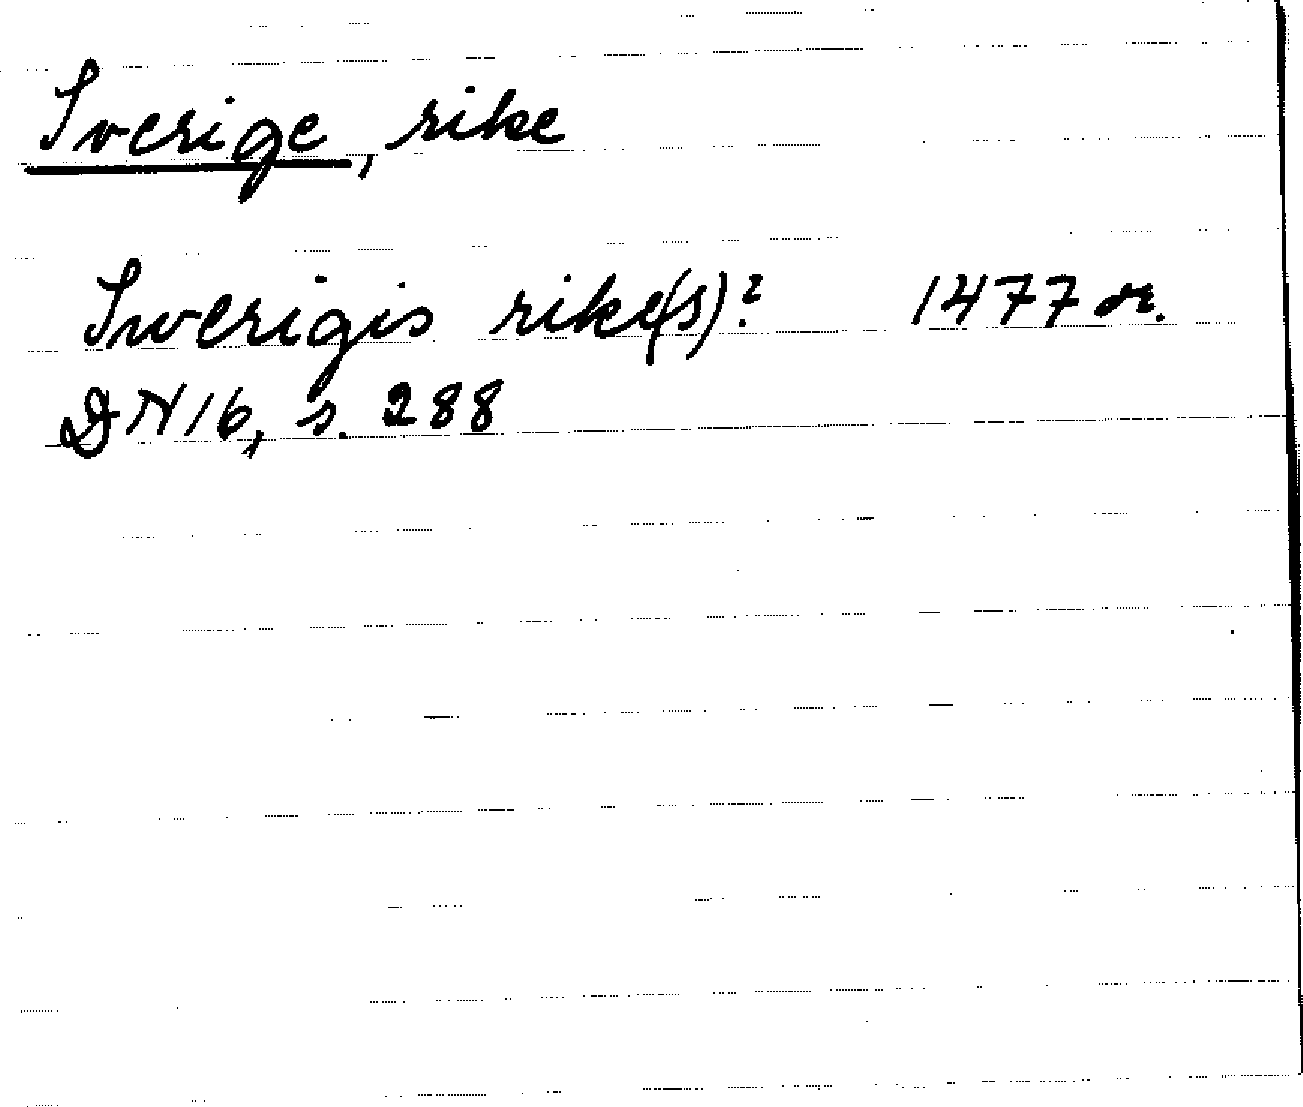 Sverige, rike
Swerigis rike(s)? 1477 or.
DN 16, s. 288